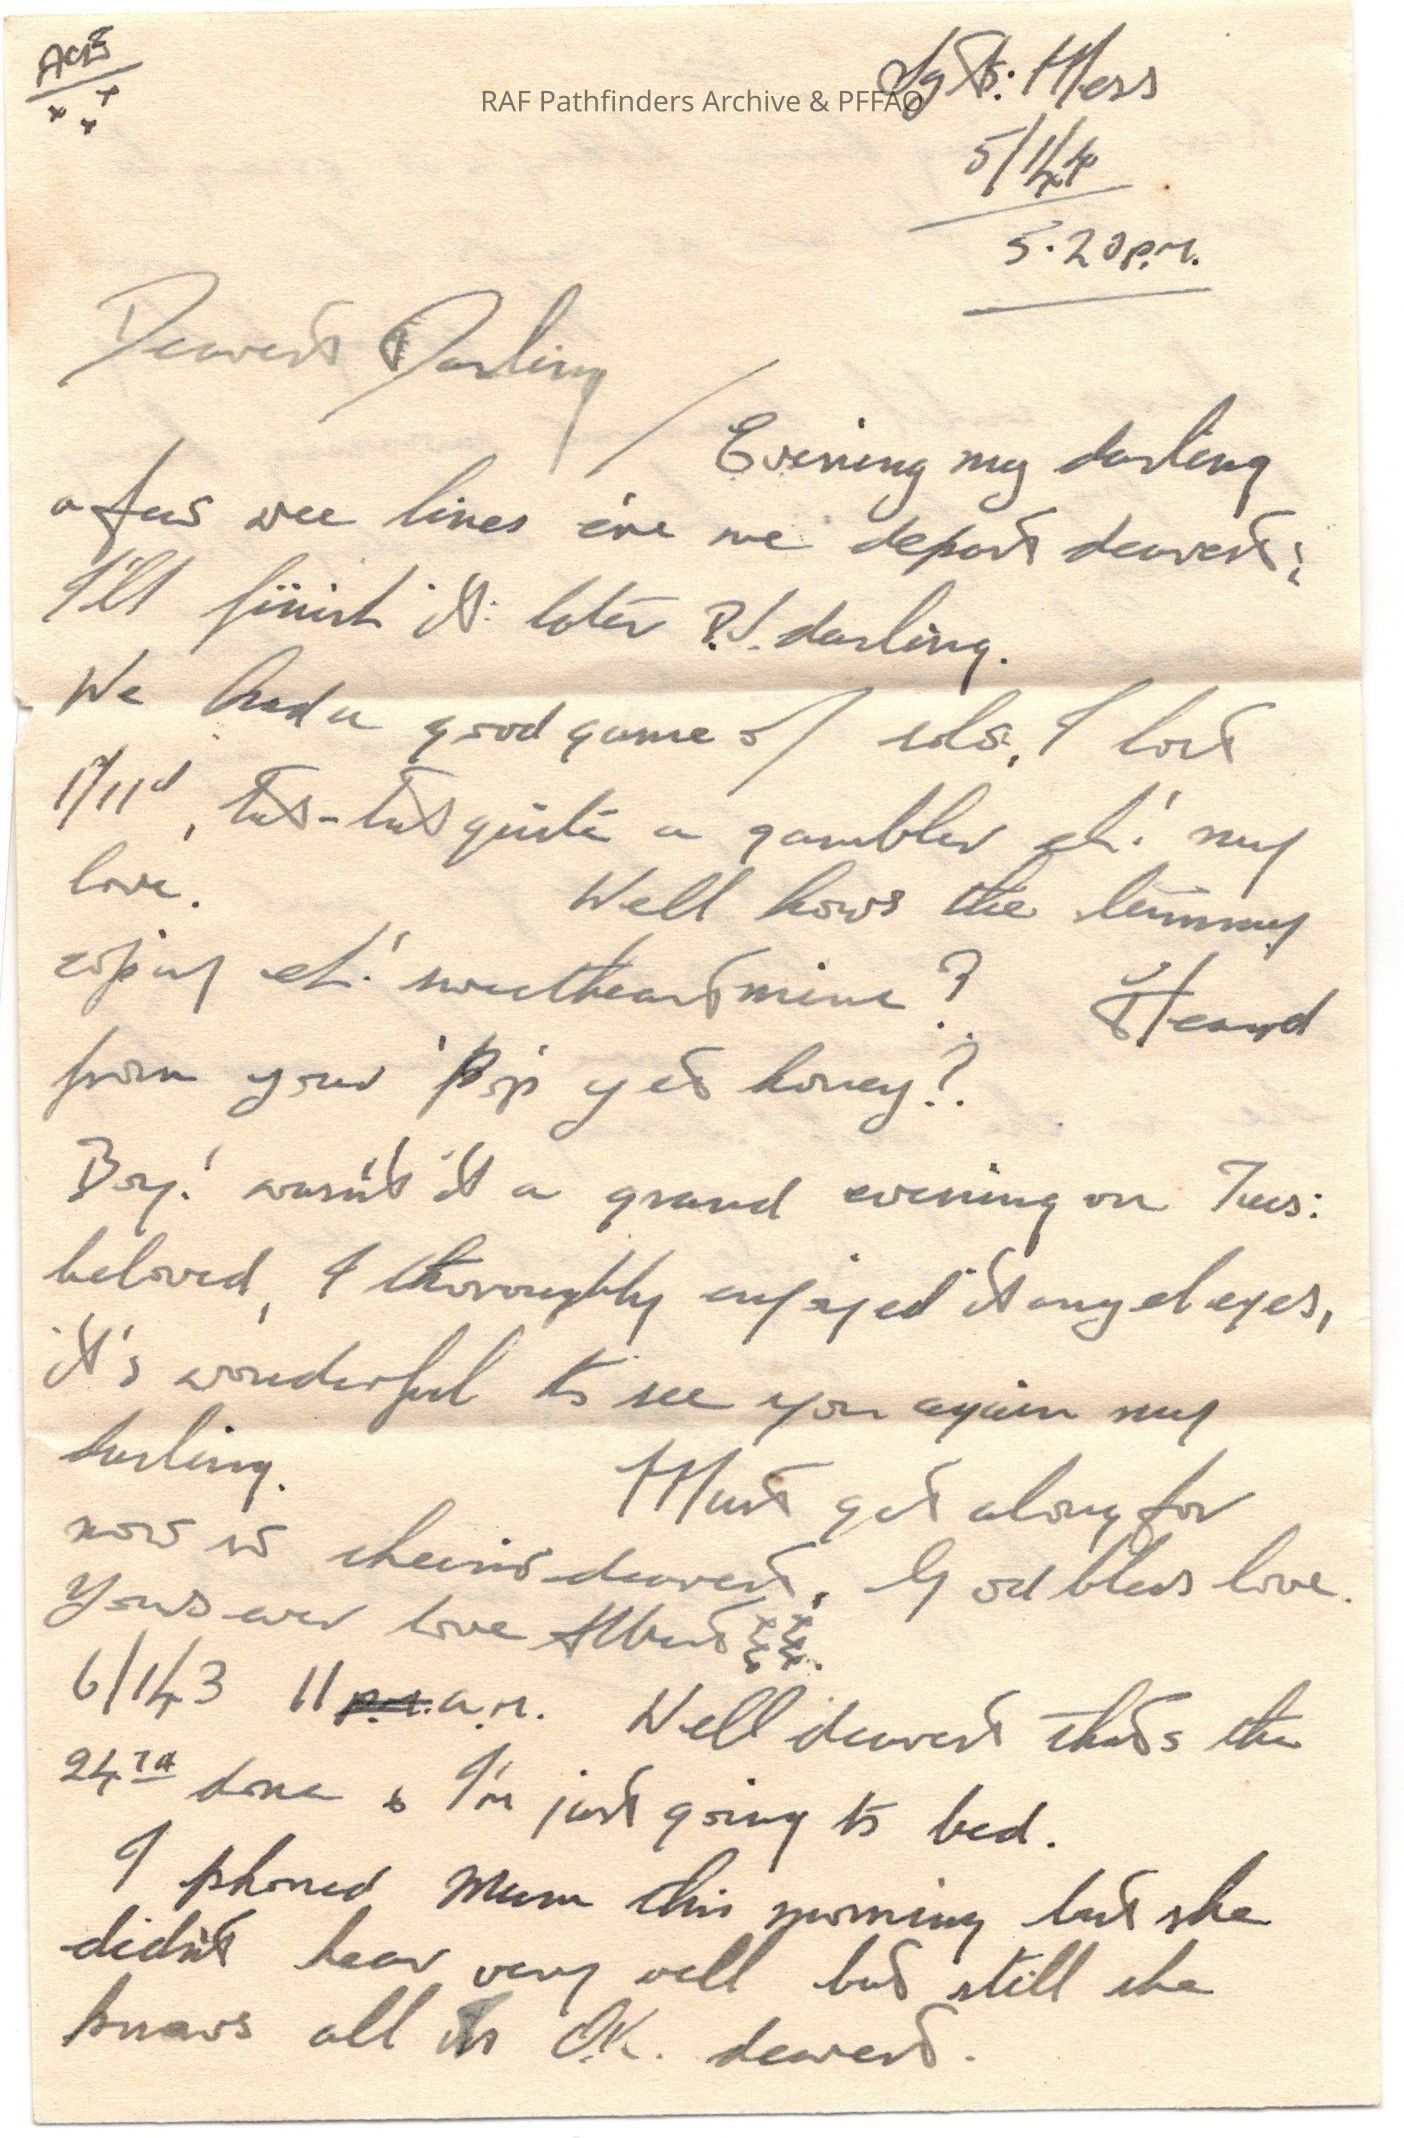 ACE
RAF Pathfinders Archive & PFFAO
Sgts: Mess
5/1/44
5.20 p.m.
Dearest Darling
Evening my darling
a few wee lines ere we depart dearest;
I'll finish it later D.V. darling.
We had a good game of solo, I lost
1/11d, tut-tut quite a gambler eh! my
love. Well hows the tummy
eh! sweetheart mine? Heard
from your Pop yet honey?
Boy! wasn't it a grand evening on Tues:
beloved, I thoroughly enjoyed it angel eyes,
it's wonderful to see you again my
darling. Must get along for
now so cheerio dearest. God bless love.
Yours ever love Albert xxxxxx.
6/1/43 11 p.m. a.m. Well dearest thats the
24th done & I'm just going to bed.
I phoned Mum this morning but she
didn't hear very well but still she
knows all is O.K. dearest.